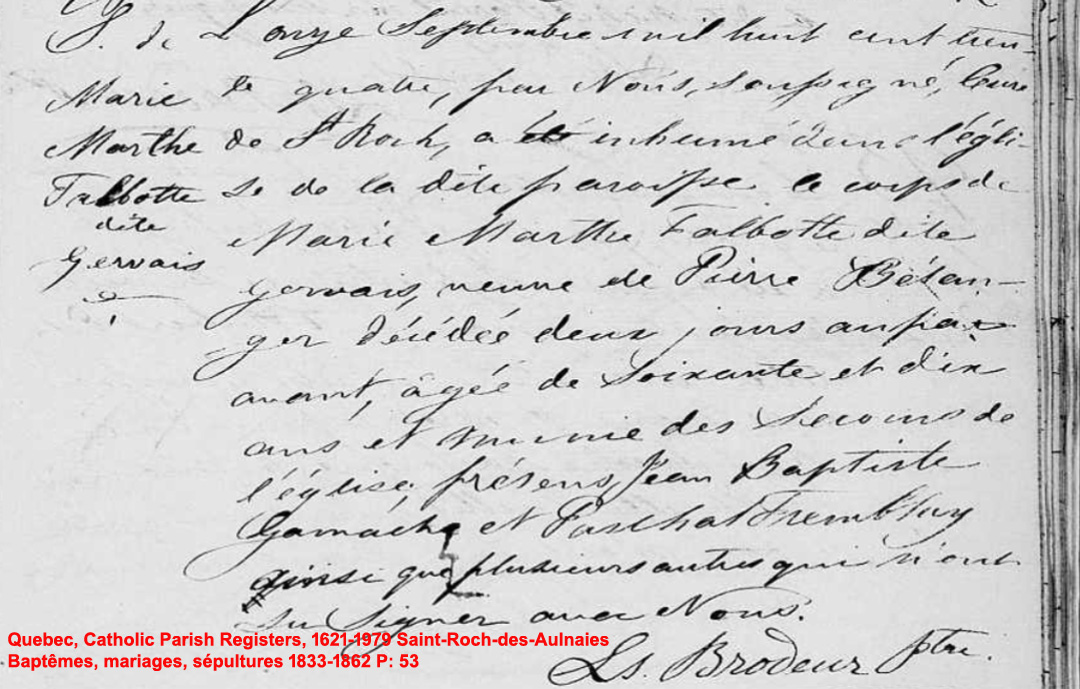 S. de
Marie
Marthe
Talbotte
dite
Gervais
L'onze Septembre mil huit cent tren-
te quatre, par Nous, soussigné, Curé
de St Roch, a été inhumé dans l'égli-
se de la dite paroisse le corps de
Marie Marthe Talbotte dite
Gervais, veuve de Pierre Bélan-
ger décédée deux jours aupar
avant, âgée de soixante et dix
ans et munie des secours de
l'église, présens Jean Baptiste
Gamache et Paschal Tremblay
ainsi que plusieurs autres qui n'ont
su signer avec Nous.
Ls. Brodeur Ptre.
Quebec, Catholic Parish Registers, 1621-1979 Saint-Roch-des-Aulnaies
Baptêmes, mariages, sépultures 1833-1862 P: 53